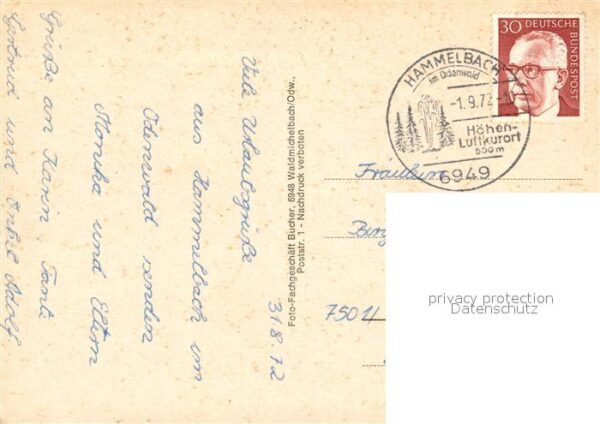 31.8.72
Viele Urlaubsgrüße
aus Hammelbach im
Odenwald senden
Monika und Eltern
Grüße an Karin, Tante
Gertrud und Onkel Adolf
Foto-Fachgeschäft Bucher, 6948 Waldmichelbach/Odw.,
Poststr. 1 - Nachdruck verboten
30 DEUTSCHE
BUNDESPOST
HAMMELBACH
im Odenwald
-1.9.72-
Höhen-
Luftkurort
500m
6949
Fräulein
7501
privacy protection
Datenschutz